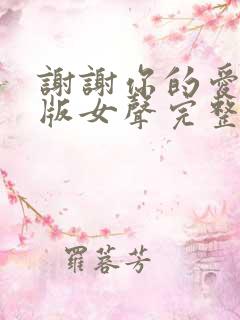 謝謝你的愛
版女聲完整
羅蓉芳